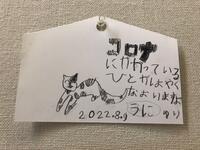 コロナ
にかかっている
ひとがはよやく
なおりますよ
うに
2022.8.9